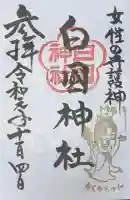 女性の守護神
白国神社
参拝令和元年十月四日